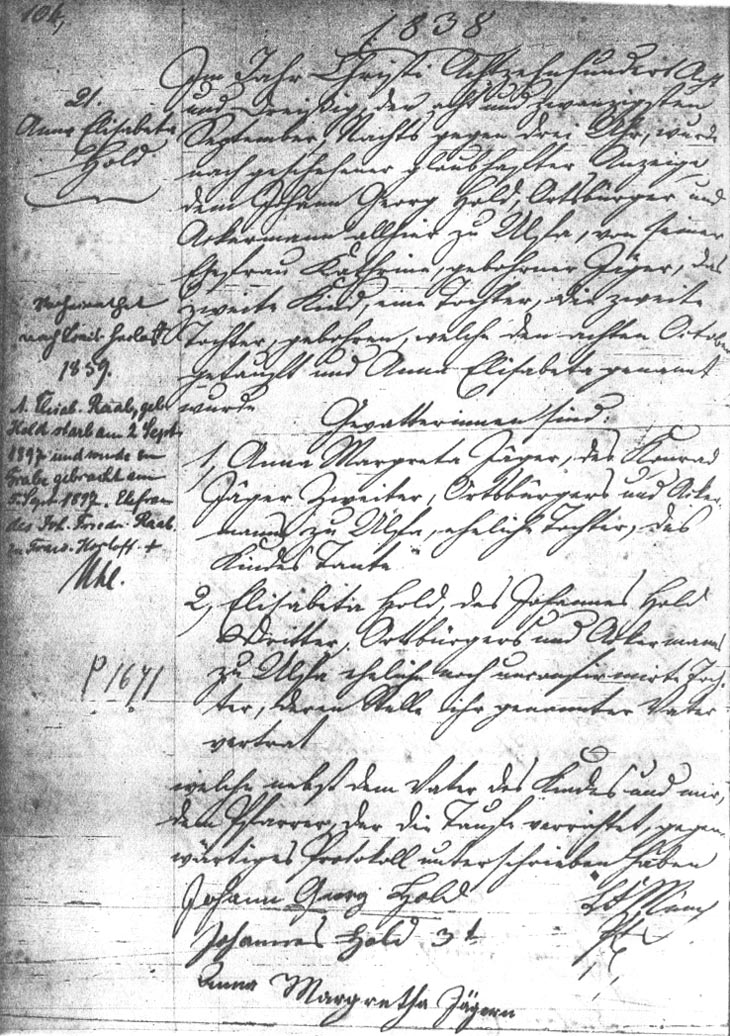 104,
1838
21.
Anna Elisabeta
Hold
Im Jahr Christi Achtzehnhundert Acht
und Dreißig, den acht und zwanzigsten
September, Nachts gegen drei Uhr, wurde
nach geschehener glaubhafter Anzeige
dem Johann Georg Hold, Ortsbürger und
Ackermann allhier zu Ulfa, von seiner
Ehefrau Kathrine, gebohrner Jäger, das
zweite Kind, eine Tochter, die zweite
Tochter, gebohren, welche den achten October
getauft und Anna Elisabeta genannt
wurde
Gevatterinnen sind:
1, Anna Margreta Jäger, des Konrad
Jäger Zweiter, Ortsbürgers und Acker-
manns zu Ulfa, eheliche Tochter, des
Kindes Tante
2, Elisabeta Hold, des Johannes Hold
Dritter, Ortsbürgers und Ackermanns
zu Ulfa eheliche noch unconfirmirte Toch-
ter, deren Stelle ihr genannter Vater
vertrat
welche nebst dem Vater des Kindes und mir,
dem Pfarrer, der die Taufe verrichtet, gegen-
wärtiges Protokoll unterschrieben haben
Johann Georg Hold
Johannes Hold 3t
Anna Margretha Jägern
Verheirathet
nach
1859.
A. Elisab. Raab, geb.
Hold starb am 2 Sept.
1897 und wurde im
Grabe gebracht am
5. Sept. 1897. Ehefrau
des Joh. Friedr. Raab
P 1671